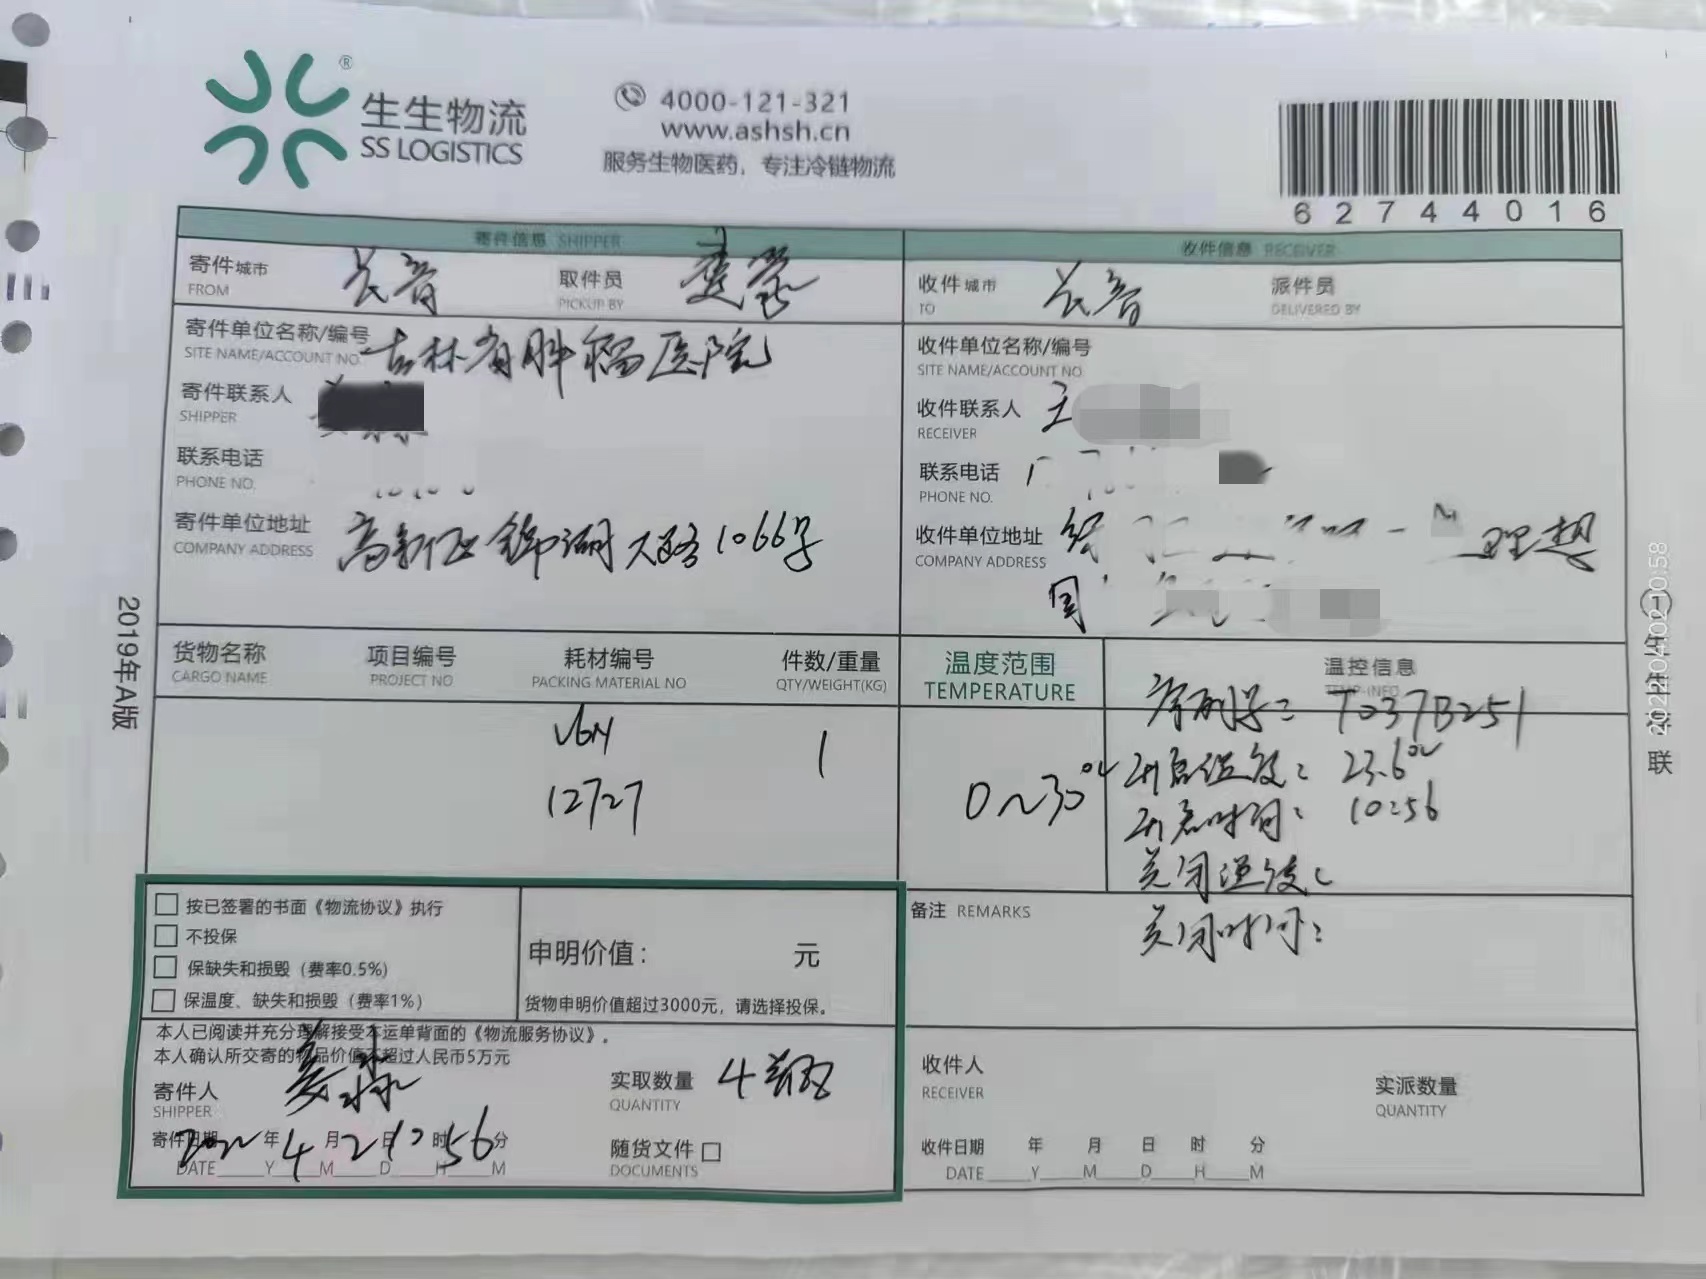 生生物流
®
SS LOGISTICS
4000-121-321
www.ashsh.cn
服务生物医药，专注冷链物流
62744016
寄件信息 SHIPPER
收件信息 RECEIVER
寄件城市 长春 取件员
FROM PICKUP BY
收件城市 长春 派件员
TO DELIVERED BY
寄件单位名称/编号 吉林省肿瘤医院
SITE NAME/ACCOUNT NO
收件单位名称/编号
SITE NAME/ACCOUNT NO
寄件联系人
SHIPPER
收件联系人
RECEIVER
联系电话
PHONE NO.
联系电话
PHONE NO.
寄件单位地址 高新区锦湖大路1066号
COMPANY ADDRESS
收件单位地址 理想
COMPANY ADDRESS
货物名称 项目编号 耗材编号 件数/重量
CARGO NAME PROJECT NO PACKING MATERIAL NO QTY/WEIGHT(KG)
温度范围 温控信息
TEMPERATURE TEMP-INFO
序列号： T037B251
V6N 1
12727
0~30℃
开启温度： 23.6℃
开启时间： 10:56
关闭温度：
关闭时间：
按已签署的书面《物流协议》执行
不投保
保缺失和损毁（费率0.5%）
保温度、缺失和损毁（费率1%）
申明价值： 元
货物申明价值超过3000元，请选择投保。
备注 REMARKS
本人已阅读并充分理解接受本运单背面的《物流服务协议》。
本人确认所交寄的物品价值不超过人民币5万元
寄件人
SHIPPER
实取数量 4
QUANTITY
寄件日期 2022年4月2日10时56分
DATE Y M D H M
随货文件
DOCUMENTS
收件人
RECEIVER
实派数量
QUANTITY
收件日期 年 月 日 时 分
DATE Y M D H M
2019年A版
联
2022.04.02 10:58